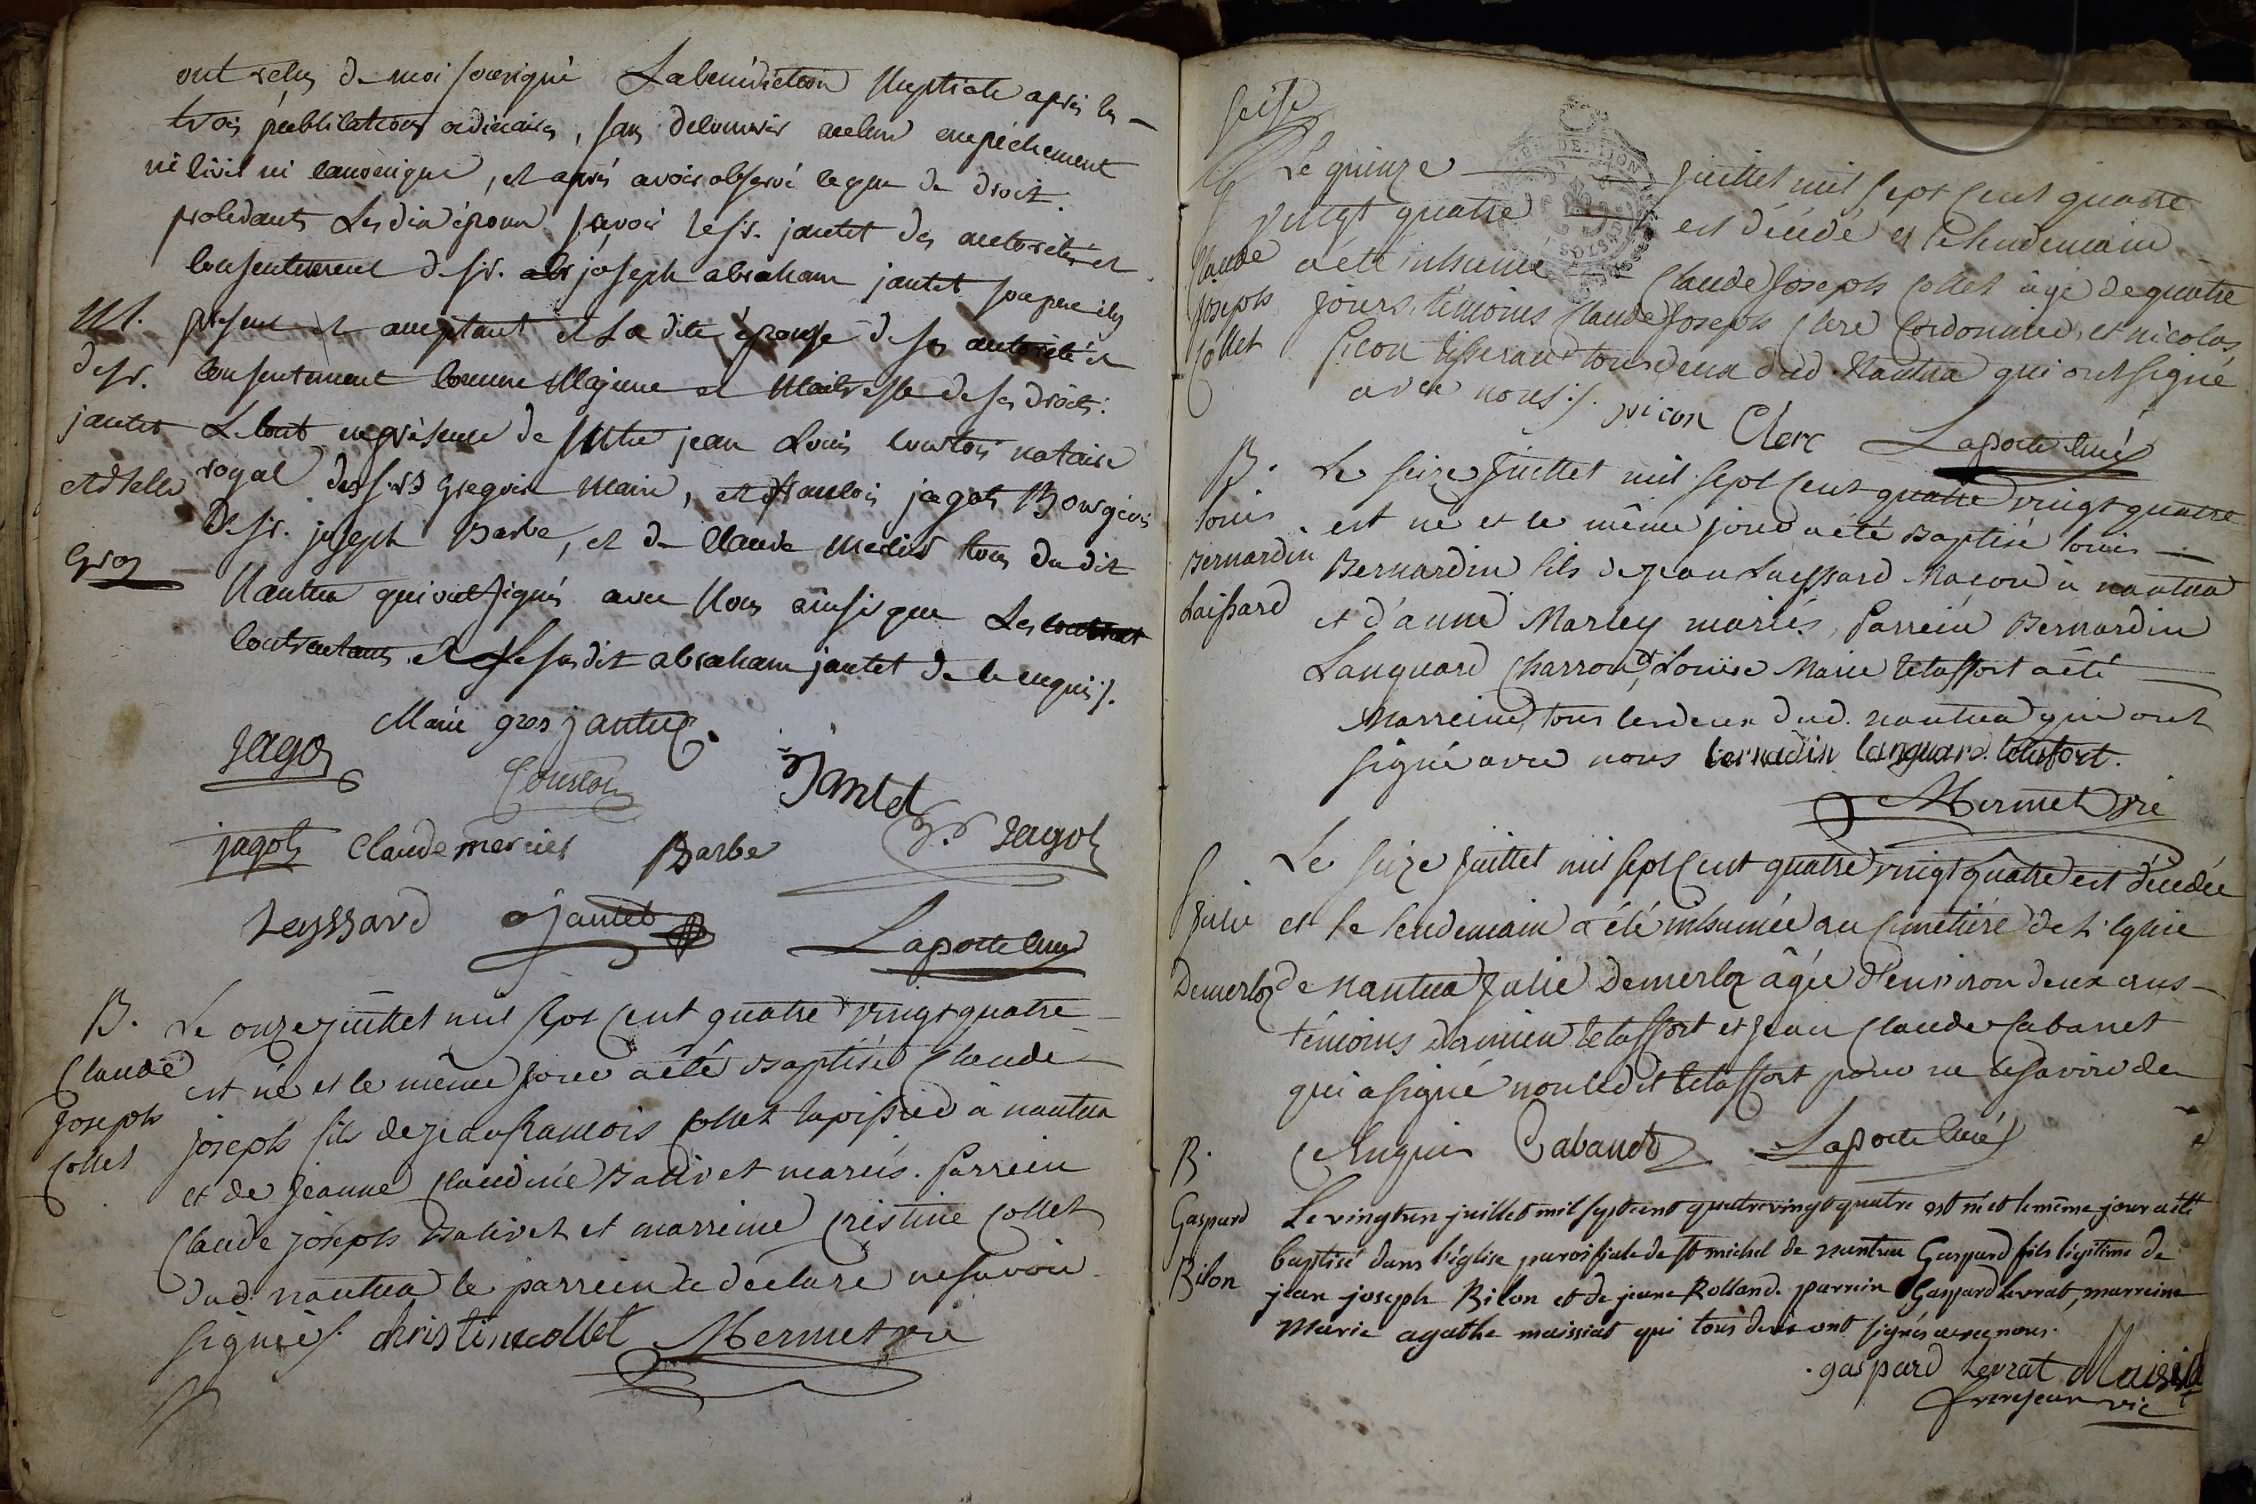 ont reçu de moi soussigné La bénédiction Nuptiale après les
trois publications ordinaires, sans découvrir aucun empéchement
ni civil ni canonique, et après avoir observé ce que de droit.
procédants Lesdits époux savoir le sr. jantet des autorité et
consentement de sr. joseph abraham jantet son père icy
M. présent et acceptant et La dite épouse de ses autorité et
de sr. consentement comme Majeure et Maitresse de ses droits:
jantet Le tout en présence de Mtre jean Louis courtois notaire
et dlle royal des srs gregoire Marie, et françois jagot Bourgeois
gros De sr. joseph Barbe, et de claude mercier tous du dit
Nantua qui ont signés avec Nous ainsi que Les
contractants et Le susdit abraham jantet de ce enquis.
Marie gros jantet
Jagot Courtois Jantet
jagot Claude mercier Barbe Jagot
Leyssard jantet Laporte curé
B. Le onze juillet mil sept cent quatre vingt quatre
Claude est né et le même jour a été baptisé Claude
Joseph joseph fils de jean françois Collet tapissier à nantua
Collet et de Jeanne Claudine Bativet mariés. Parrein
Claude joseph Bativet et marreine Cristine Collet
dud. nantua le parrein a déclaré ne savoir
signer. christine collet Mermet vie
seize
Le quinze Juillet mil sept cent quatre
vingt quatre est décédé et le lendemain
Claude a été inhumé Claude Joseph Collet agé de quatre
Joseph jours, témoins Claude Joseph Clerc Cordonnier, et nicolas
Collet Picon tisserand tous deux dud. Nantua qui ont signé
avec nous. picon Clerc Laporte curé
B. Le seize Juillet mil sept cent quatre vingt quatre
Louis est né et le même jour a été baptisé Louis
Bernardin Bernardin fils de jean Laissard Maçon à nantua
Laissard et d'anne Marley mariés, Parrein Bernardin
Languard Charron, et Louise Marie tetaffort a été
Marreine, tous les deux dud. nantua qui ont
signé avec nous bernadin languard. tetafort.
Mermet vie
Le seize juillet mil sept cent quatre vingt quatre est décédée
Julie et le lendemain a été inhumée au cimetière de l'Eglise
Demerloz de Nantua Julie Demerloz âgée d'environ deux ans
témoins damien tetaffort et Jean Claude Cabanet
qui a signé non ledit tetaffort pour ne le savoir de
ce Enquis Cabanet Laporte curé
B.
Gaspard Le vingt un juillet mil sept cent quatre vingt quatre est né et le même jour a été
baptisé dans l'église paroissiale de st michel de nantua Gaspard fils légitime de
Bilon jean joseph Bilon et de jeane Rolland. parrein Gaspard Levrat, marreine
Marie agathe maissiat qui tous deux ont signés avec nous.
gaspard Levrat Maissiat
vic